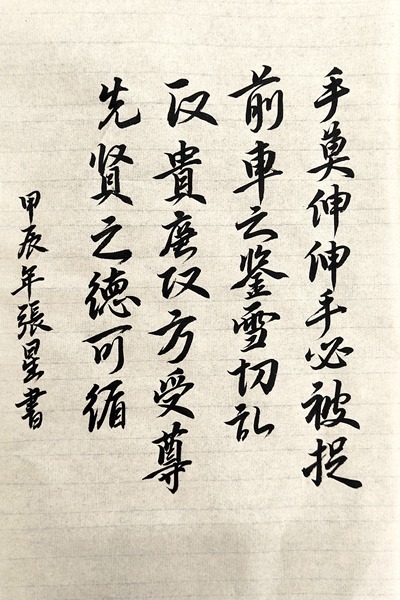 手莫伸伸手必被捉
前車之鉴雪切記
政貴廉政方受尊
先賢之德可循
甲辰年張星書